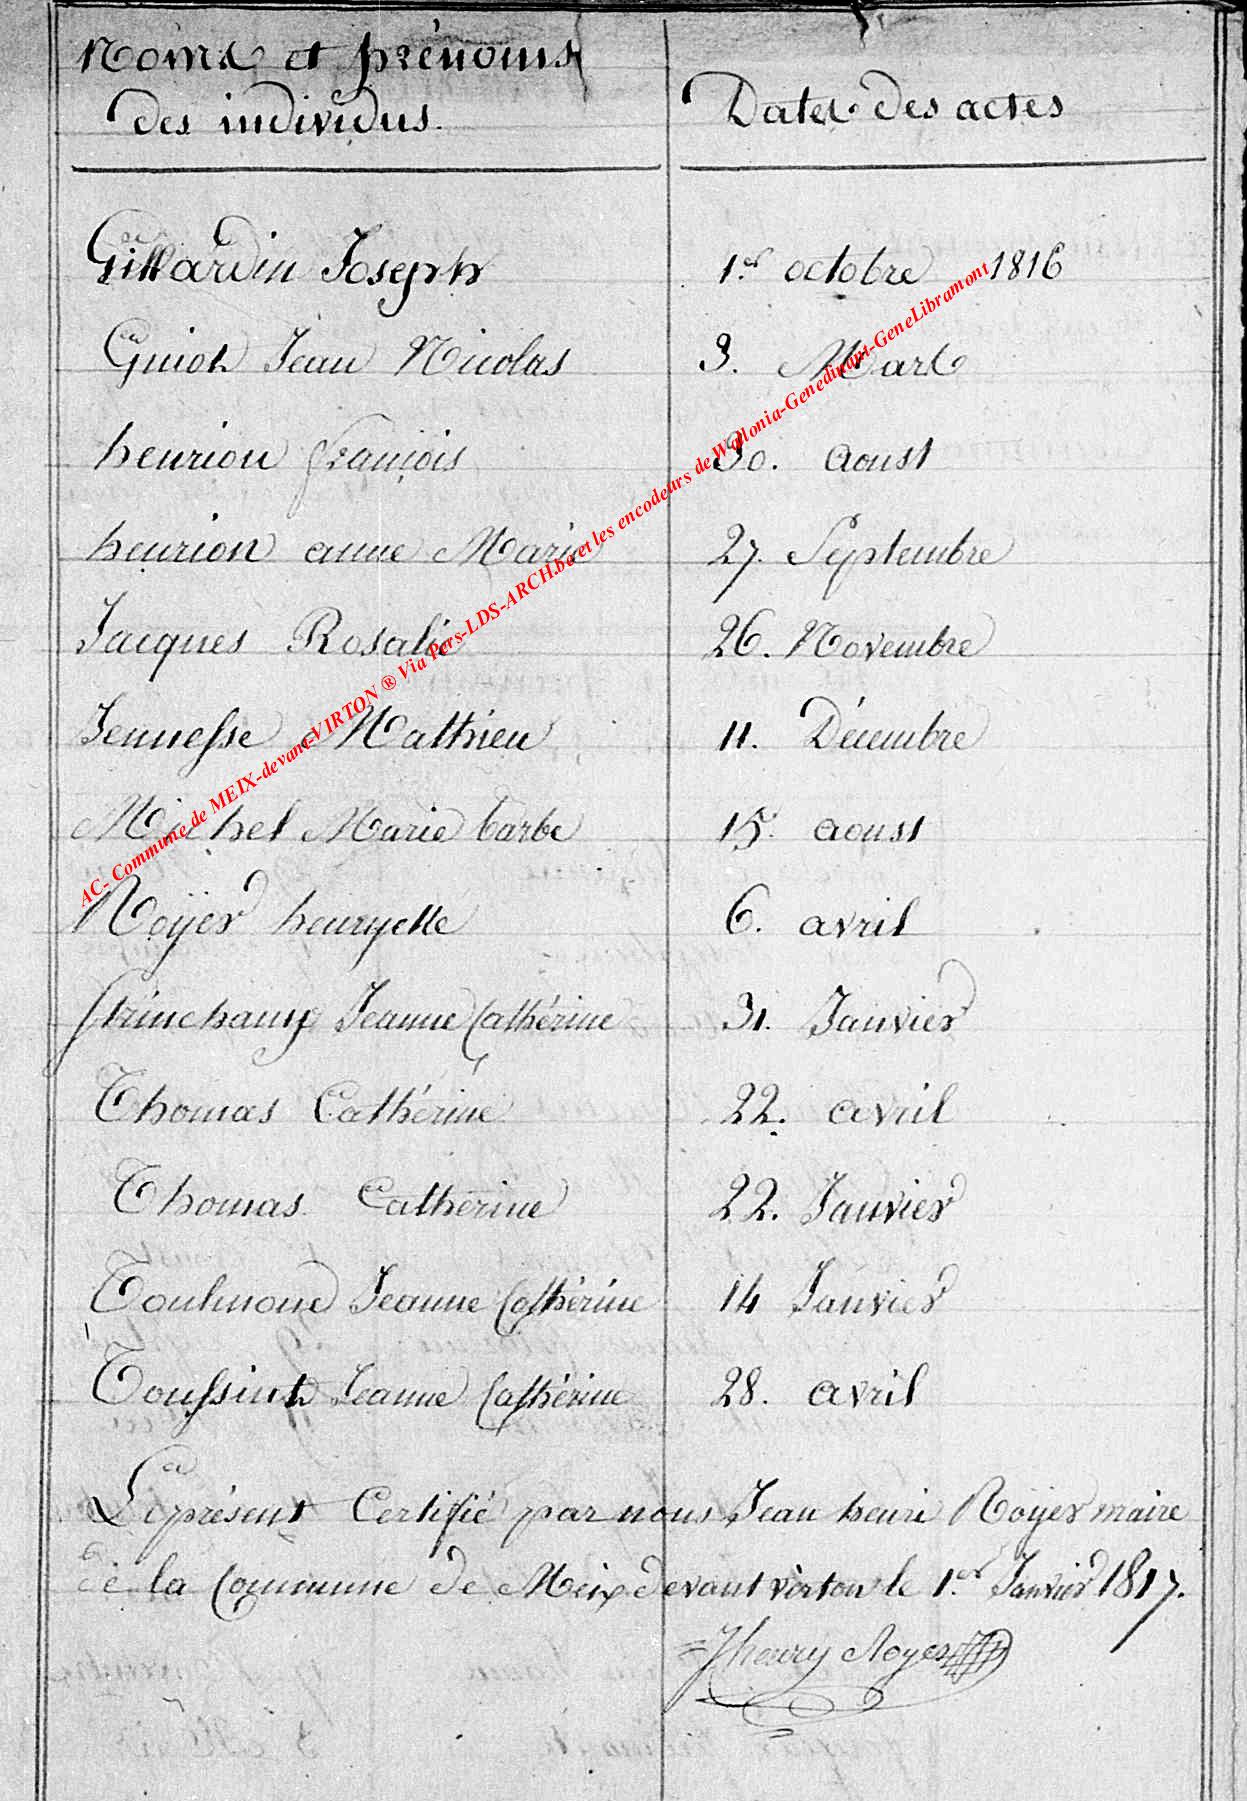 Noms et prénoms
des individus.
Dates des actes
Gillardin Joseph 1er octobre 1816
Guiot Jean Nicolas 3. Mars
henrion françois 30. aoust
henrion anne Marie 27. Septembre
Jacques Rosalie 26. Novembre
Jennesse Mathieu 11. Décembre
Michel Marie barbe 15. aoust
Roÿer henryette 6. avril
Jeanne Cathérine 31. Janvier
Thomas Cathérine 22. avril
Thomas Cathérine 22. Janvier
Toulmond Jeanne Cathérine 14 Janvier
Toussint Jeanne Cathérine 28. avril
Le présent Certifié par nous Jean henri Roÿer maire
de la Commune de Meix devant virton le 1.er Janvier 1817.
Jhenry Royer
AC- Commune de MEIX-devant-VIRTON ® Via Pers-LDS-ARCH.be et les encodeurs de Wallonia-Genedinant-GeneLibramont